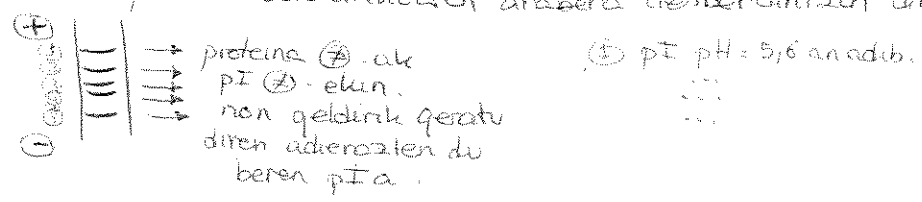 arabera
+
proteina ≠ ak
pI ≠ ekin.
non geldirik geratu
diren adierazten du
beren pI a.
-
① pI pH = 5,6 an adib.
...
...
...